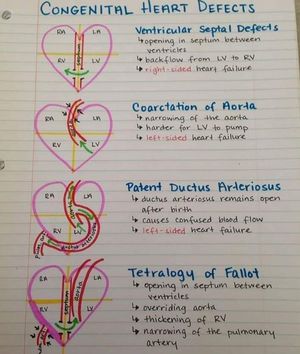 CONGENITAL HEART DEFECTS
Ventricular Septal Defects
↳ opening in septum between
ventricles
↳ backflow from LV to RV
↳ right-sided heart failure
RA LA
septum
RV LV
Coarctation of Aorta
↳ narrowing of the aorta
↳ harder for LV to pump
↳ left-sided heart failure
RA LA
aorta
RV LV
Patent Ductus Arteriosus
↳ ductus arteriosus remains open
after birth
↳ causes confused blood flow
↳ left-sided heart failure
RA LA
aorta
RV LV
ductus arteriosus
Tetralogy of Fallot
↳ opening in septum between
ventricles
↳ overriding aorta
↳ thickening of RV
↳ narrowing of the pulmonary
artery
RA LA
septum
RV LV